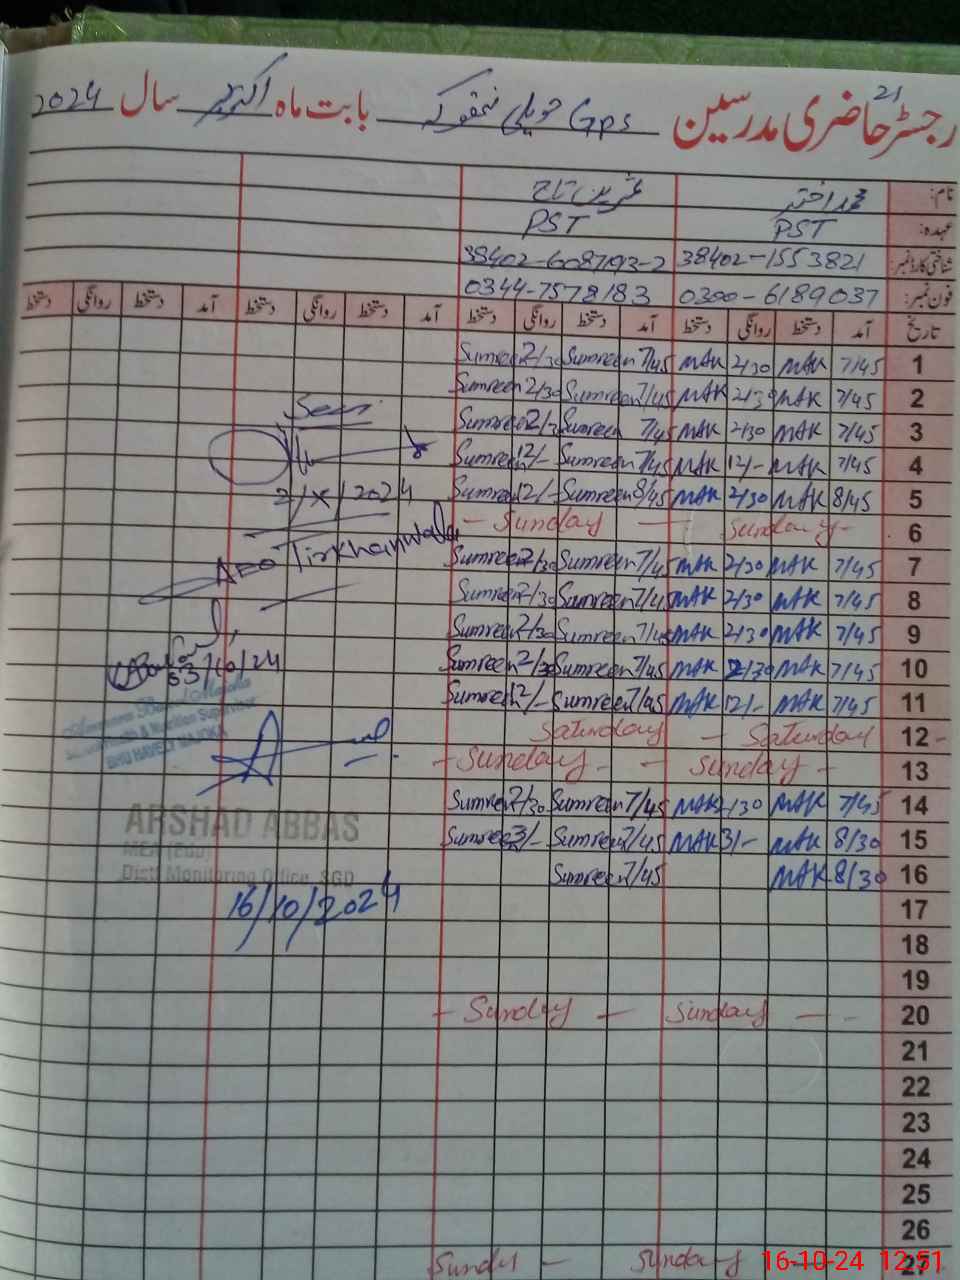 21
رجسٹر حاضری مدرسین Gps حویلی بابت ماہ اکتوبر سال 2024
نام: محمد اختر ثمرین تاج
عہدہ: PST PST
شناختی کارڈ نمبر: 38402-1553821 38402-6087193-2
فون نمبر: 0300-6189037 0344-7578183
تاریخ آمد دستخط روانگی دستخط آمد دستخط روانگی دستخط آمد دستخط روانگی دستخط آمد دستخط روانگی دستخط
1 7/45 MAK 2/30 MAK 7/45 Sumreen 2/30 Sumreen
2 7/45 MAK 2/30 MAK 7/45 Sumreen 2/30 Sumreen
3 7/45 MAK 2/30 MAK 7/45 Sumreen 2/30 Sumreen
4 7/45 MAK 12/- MAK 7/45 Sumreen 12/- Sumreen
5 8/45 MAK 2/30 MAK 8/45 Sumreen 12/- Sumreen
6 Sunday - - Sunday -
7 7/45 MAK 2/30 MAK 7/45 Sumreen 2/30 Sumreen
8 7/45 MAK 2/30 MAK 7/45 Sumreen 2/30 Sumreen
9 7/45 MAK 2/30 MAK 7/45 Sumreen 2/30 Sumreen
10 7/45 MAK 2/30 MAK 7/45 Sumreen 2/30 Sumreen
11 7/45 MAK 12/- MAK 7/45 Sumreen 12/- Sumreen
12 - Saturday - Saturday
13 - Sunday - - Sunday -
14 7/45 MAK 2/30 MAK 7/45 Sumreen 2/30 Sumreen
15 8/30 MAK 3/- MAK 7/45 Sumreen 3/- Sumreen
16 8/30 MAK 7/45 Sumreen
17
18
19
20 Sunday - - - Sunday -
21
22
23
24
25
26
27 Sunday - Sunday -
Seen
2/X/2024
AEO Tirkhanwala
03/10/24
& Nutrition Supervisor
BHU HAVELY MAJOKA
ARSHAD ABBAS
MEA (Edu)
Distt Monitoring Office, SGD
16/10/2024
16-10-24 12:51